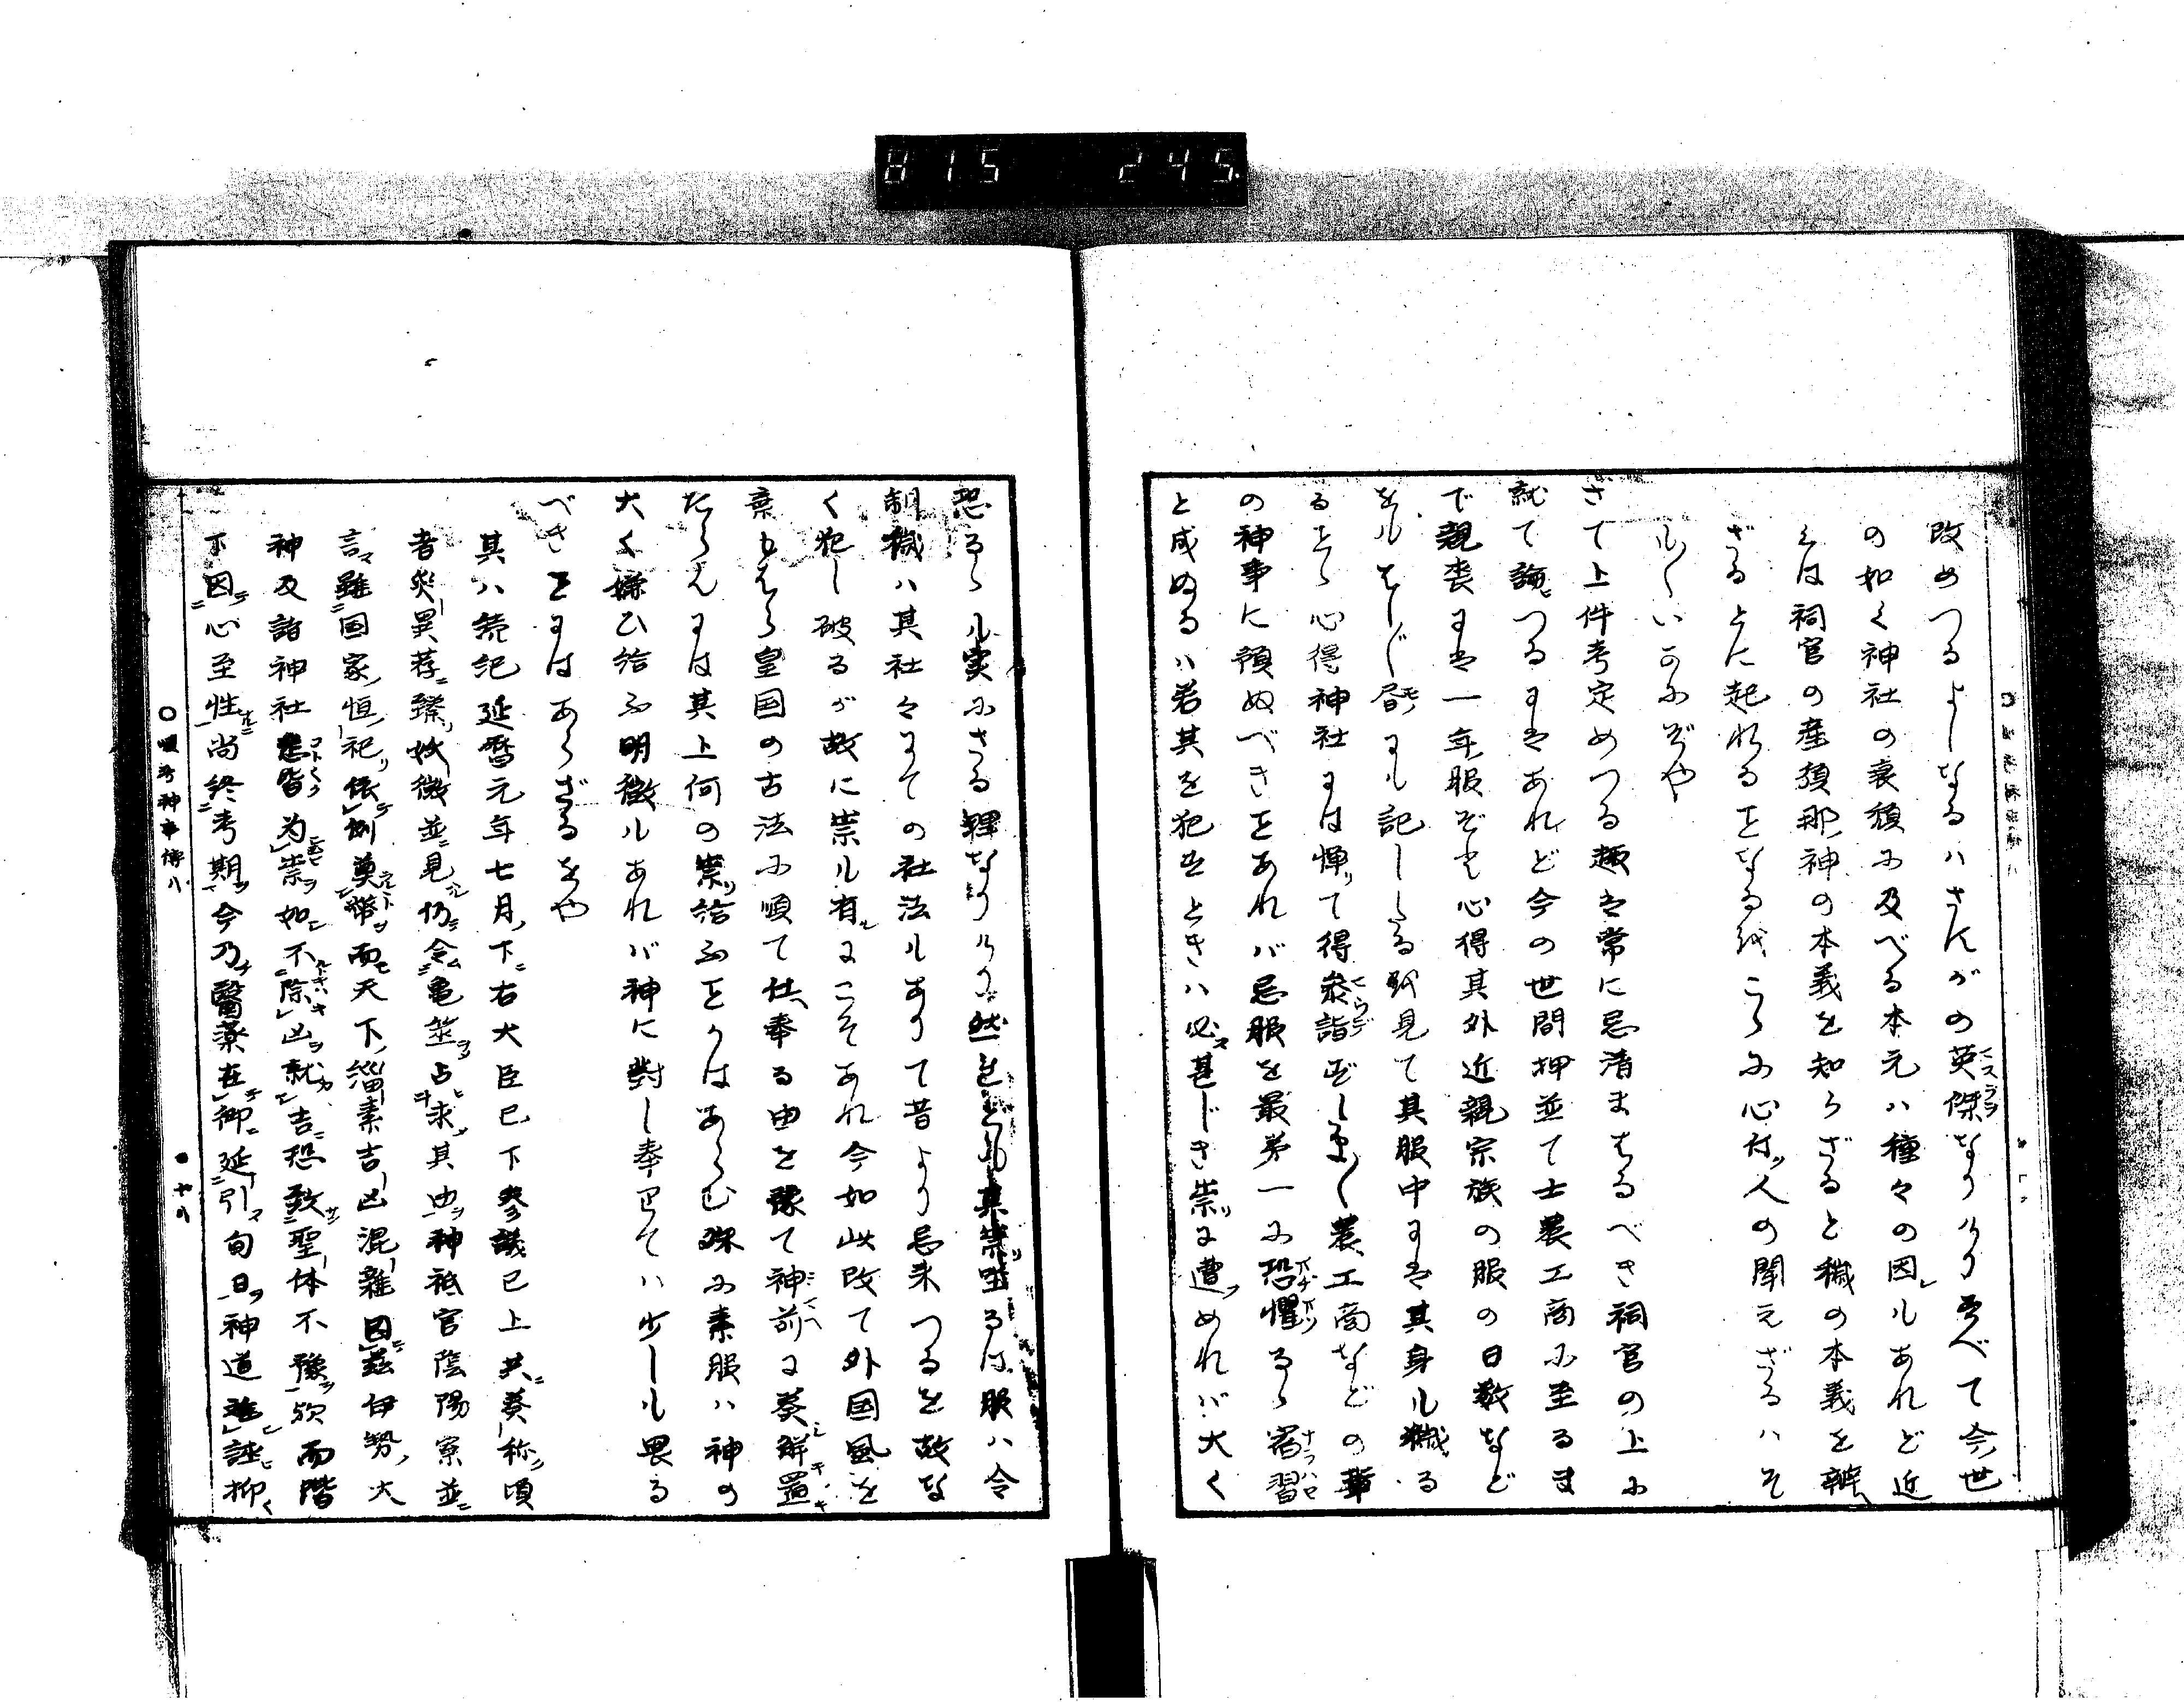 815 245.
改めつるよしなるハさんがの英傑なりけりすべて今世
の如く神社の衰頽に及べる本元ハ種々の因もあれど近
くは祠官の産須那神の本義を知らざると穢の本義を辨
ざるとに起れることなるをこゝに心付人の聞えざるハそ
も〱いかにぞや
さて上件考定めつる趣は常に忌清まはるべき祠官の上に
就て論つるにはあれど今の世間押並て士農工商に至るま
で親喪には一年服ぞと心得其外近親宗族の服の日数など
をもはしぐ暦にも記したるを見て其服中には其身も穢る
ることゝ心得神社には憚て得参詣ずしも農工商などの輩
の神事に預ぬべきことあれバ忌服を最第一に恐懼るゝ宿習
と成ぬるハ若其を犯すときハ必甚じき祟に遭めれバ大く
恐るゝも実にさる理なりけり然れども其祟坐るは服ハ令
制穢ハ其社々にての社法もありて昔より忌来つるを故な
く犯し破るが故に祟も有にこそあれ今如此改て外国風を
棄もはら皇国の古法に順て仕奉る由を豫て神前に葵鮮置
たらんには其上何の祟給ふことかはあらむ殊に素服ハ神の
大く嫌ひ給ふ明徴もあれバ神に對し奉りてハ少しも畏る
べきことにはあらざるをや
其ハ続紀延暦元年七月下右大臣已下参議已上共奏称頃
者災異荐臻妖徴並見仍令亀筮占求其由神祇官陰陽寮並
言雖国家恒祀依例奠幣而天下縞素吉凶混雑因茲伊勢大
神及諸神社悉皆為祟如不除凶就吉恐致聖体不豫歟而陛
下因心至性尚終孝期今乃醫薬在御延引旬日神道難誣抑